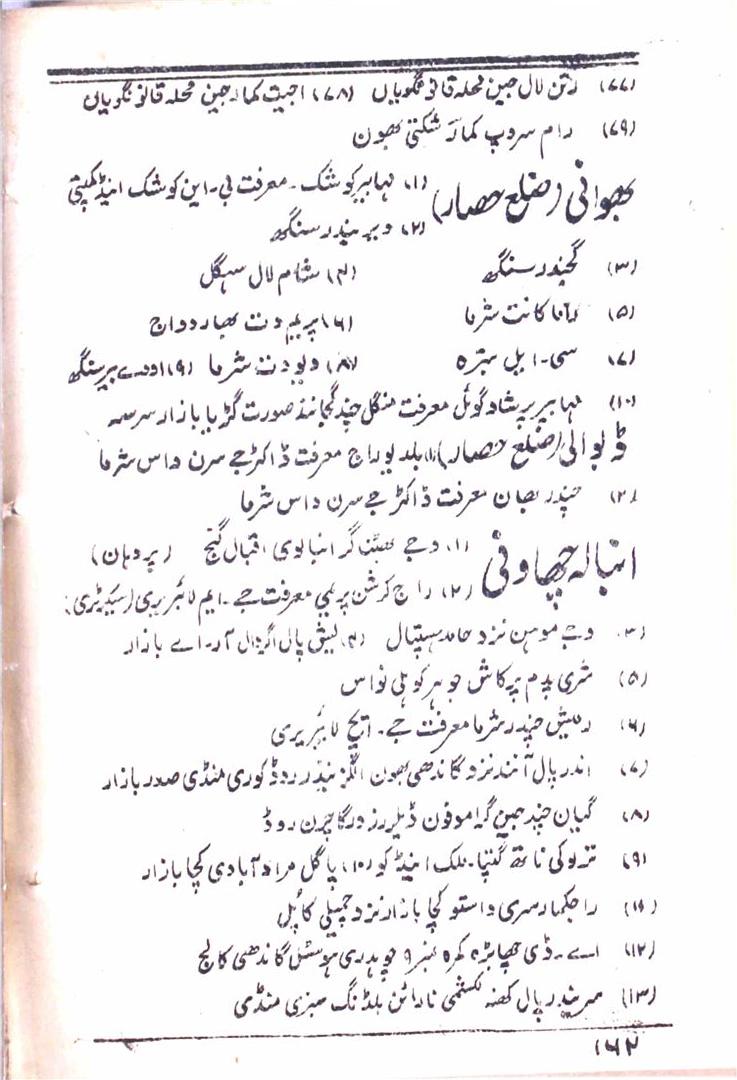 (۷۷) رتن لال جین محلہ قانونگویاں (۷۸) اجیت کمار جین محلہ قانونگویاں
(۷۹) رام سروپ کمار شکتی بھون
بھوانی (ضلع حصار) (۱) مہابیر کوشک۔ معرفت بی۔ این کوشک اینڈ کمپنی
(۲) ویریندر سنگھ
(۳) گجندر سنگھ (۴) شام لال سہگل
(۵) کانت شرما (۶) پریم دت بھاردواج
(۷) سی۔ ایل بترہ (۸) دیودت شرما (۹) اودے بیر سنگھ
(۱۰) مہابیر پرشاد گوئل معرفت منگل چند گجانند صورت گڑیا بازار سرسہ
ڈبوالی (ضلع حصار) (۱) بلدیو راج معرفت ڈاکٹر جے سرن داس شرما
(۲) چندر بھان معرفت ڈاکٹر جے سرن داس شرما
انبالہ چھاونی (۱) وجے بھٹناگر انبالوی اقبال گنج (پردہان)
(۲) راج کرشن پریمی معرفت جے۔ ایم لائبریری (سیکریٹری)
(۳) وجے موہن نزد حامد ہسپتال (۴) پالی اگروال آر۔ اے بازار
(۵) شری پدم پرکاش جوہر کوہلی نواس
(۶) رمیش چندر شرما معرفت جے۔ ایچ لائبریری
(۷) اندر پال آنند نزد گاندھی بھون روڈ کوری منڈی صدر بازار
(۸) گیان چند جین گراموفون ڈیلرز درگا چرن روڈ
(۹) ترلوکی ناتھ گپتا۔ ملک اینڈ کو (۱۰) پاگل مراد آبادی کچا بازار
(۱۱) راجکمار سری واستو کچا بازار نزد چمیلی کا پل
(۱۲) اے۔ ڈی چھابڑہ کمرہ نمبر ۹ چوہدری ہوسٹل گاندھی کالج
(۱۳) مہندر پال کھنہ لکشمی نارائن بلڈنگ سبزی منڈی
۱۶۲